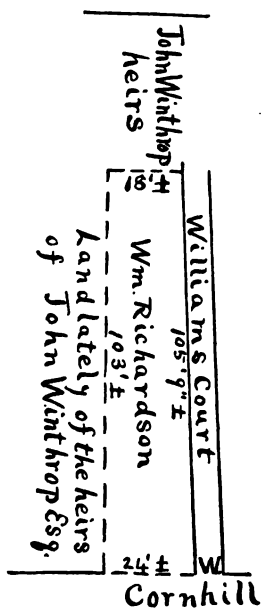 John Winthrop
heirs
18'±
Williams Court
105'.9"±
Wm. Richardson
103'±
Land lately of the heirs
of John Winthrop Esq.
24'±
W
Cornhill